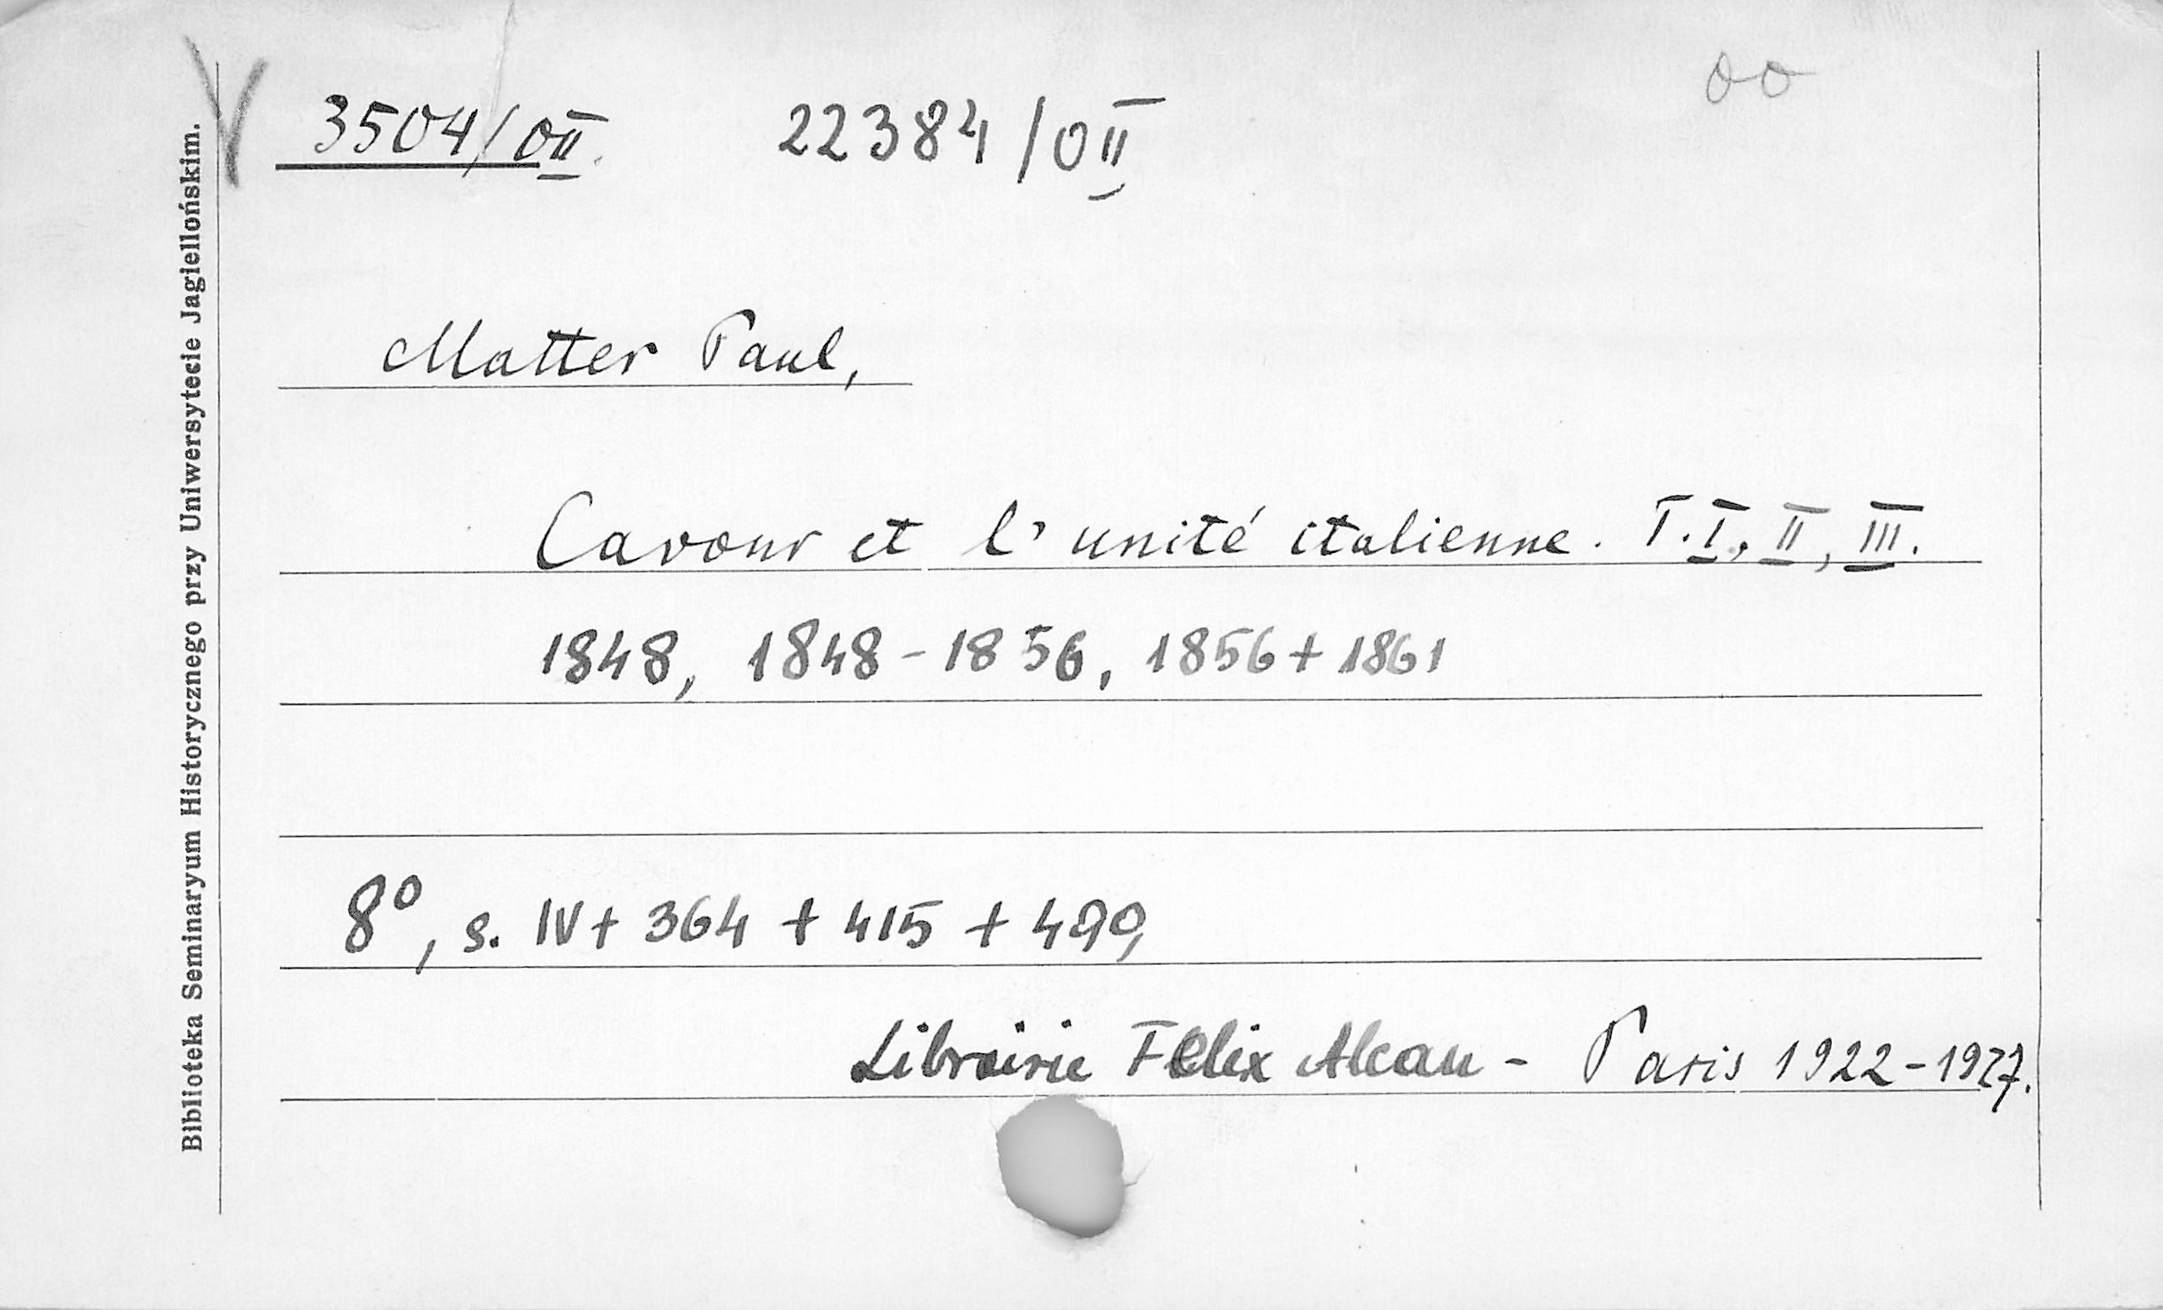 3504/OII. 22384/OII
oo
Matter Paul,
Cavour et l'unité italienne. T. I, II, III.
1848, 1848-1856, 1856+1861
8°, s. IV+ 364 + 415 + 490,
Librairie Felix Alcan - Paris 1922-1927.
Biblioteka Seminaryum Historycznego przy Uniwersytecie Jagiellońskim.